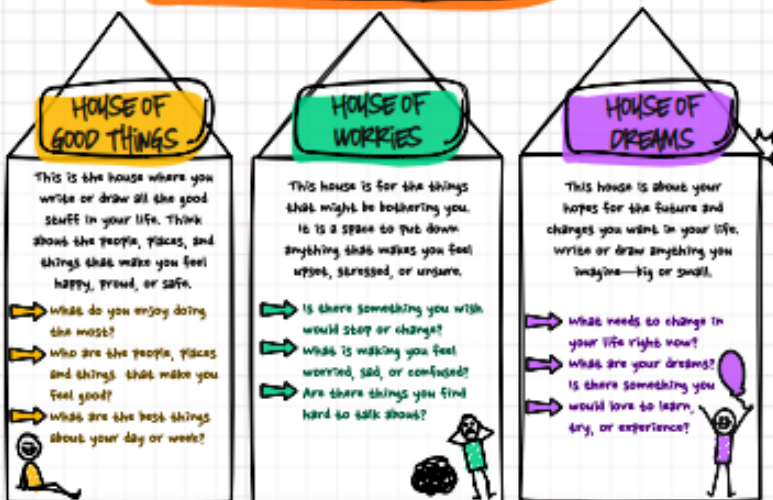 HOUSE OF
GOOD THINGS
This is the house where you
write or draw all the good
stuff in your life. Think
about the people, places, and
things that make you feel
happy, proud, or safe.
What do you enjoy doing
the most?
Who are the people, places
and things that make you
feel good?
What are the best things
about your day or week?
HOUSE OF
WORRIES
This house is for the things
that might be bothering you.
It is a space to put down
anything that makes you feel
upset, stressed, or unsure.
Is there something you wish
would stop or change?
What is making you feel
worried, sad, or confused?
Are there things you find
hard to talk about?
HOUSE OF
DREAMS
This house is about your
hopes for the future and
changes you want in your life.
Write or draw anything you
imagine—big or small.
What needs to change in
your life right now?
What are your dreams?
Is there something you
would love to learn,
try, or experience?